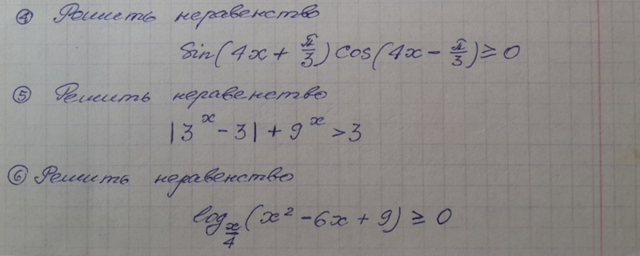 ④ Решить неравенство
Sin(4x + π/3) cos(4x − π/3) ≥ 0
⑤ Решить неравенство
|3^x − 3| + 9^x > 3
⑥ Решить неравенство
log_{x/4}(x² − 6x + 9) ≥ 0